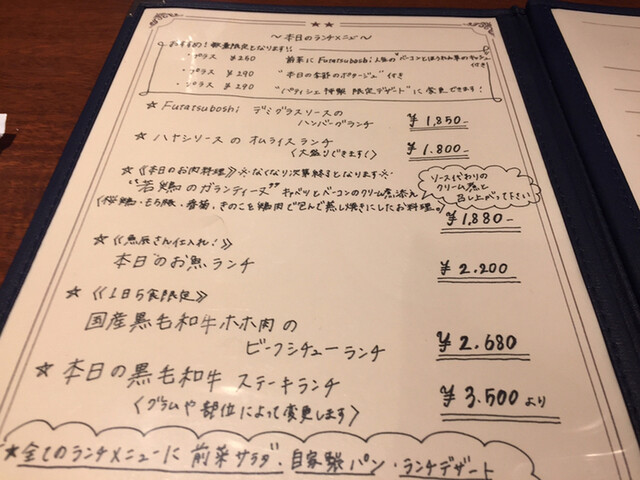 ～本日のランチメニュー～
おすすめ！数量限定となります！！
・プラス ¥250 前菜に Futatsuboshi 人気の"ベーコンとほうれん草のキッシュ"付き
・プラス ¥290 "本日の季節のポタージュ"付き
・プラス ¥290 "パティシエ特製 限定デザート"に変更できます！
☆ Futatsuboshi デミグラスソースの
ハンバーグランチ ¥1,850-
☆ ハヤシソースの オムライスランチ
〈大盛りできます〉 ¥1.800-
☆《本日のお肉料理》※なくなり次第終了となります※
"若鶏のガランティーヌ" キャベツとベーコンのクリーム煮添え
〈桜鶏・もち豚・香菊・きのこを鶏肉で包んで蒸し焼きにしたお料理。〉
ソース代わりの
クリーム煮と
召し上がって下さい
¥1,880-
☆《魚屋さん仕入れ！》
本日のお魚ランチ ¥2.200
☆《1日5食限定》
国産黒毛和牛ホホ肉の
ビーフシチューランチ ¥2.680
☆ 本日の黒毛和牛 ステーキランチ
〈グラムや部位によって変更します〉 ¥3.500より
☆全てのランチメニューに 前菜サラダ・自家製パン・ランチデザート